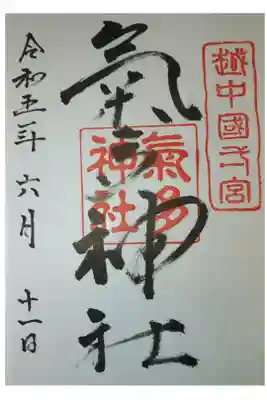 越中國弌宮
氣多神社
氣多
神社
令和五年 六月 十一日